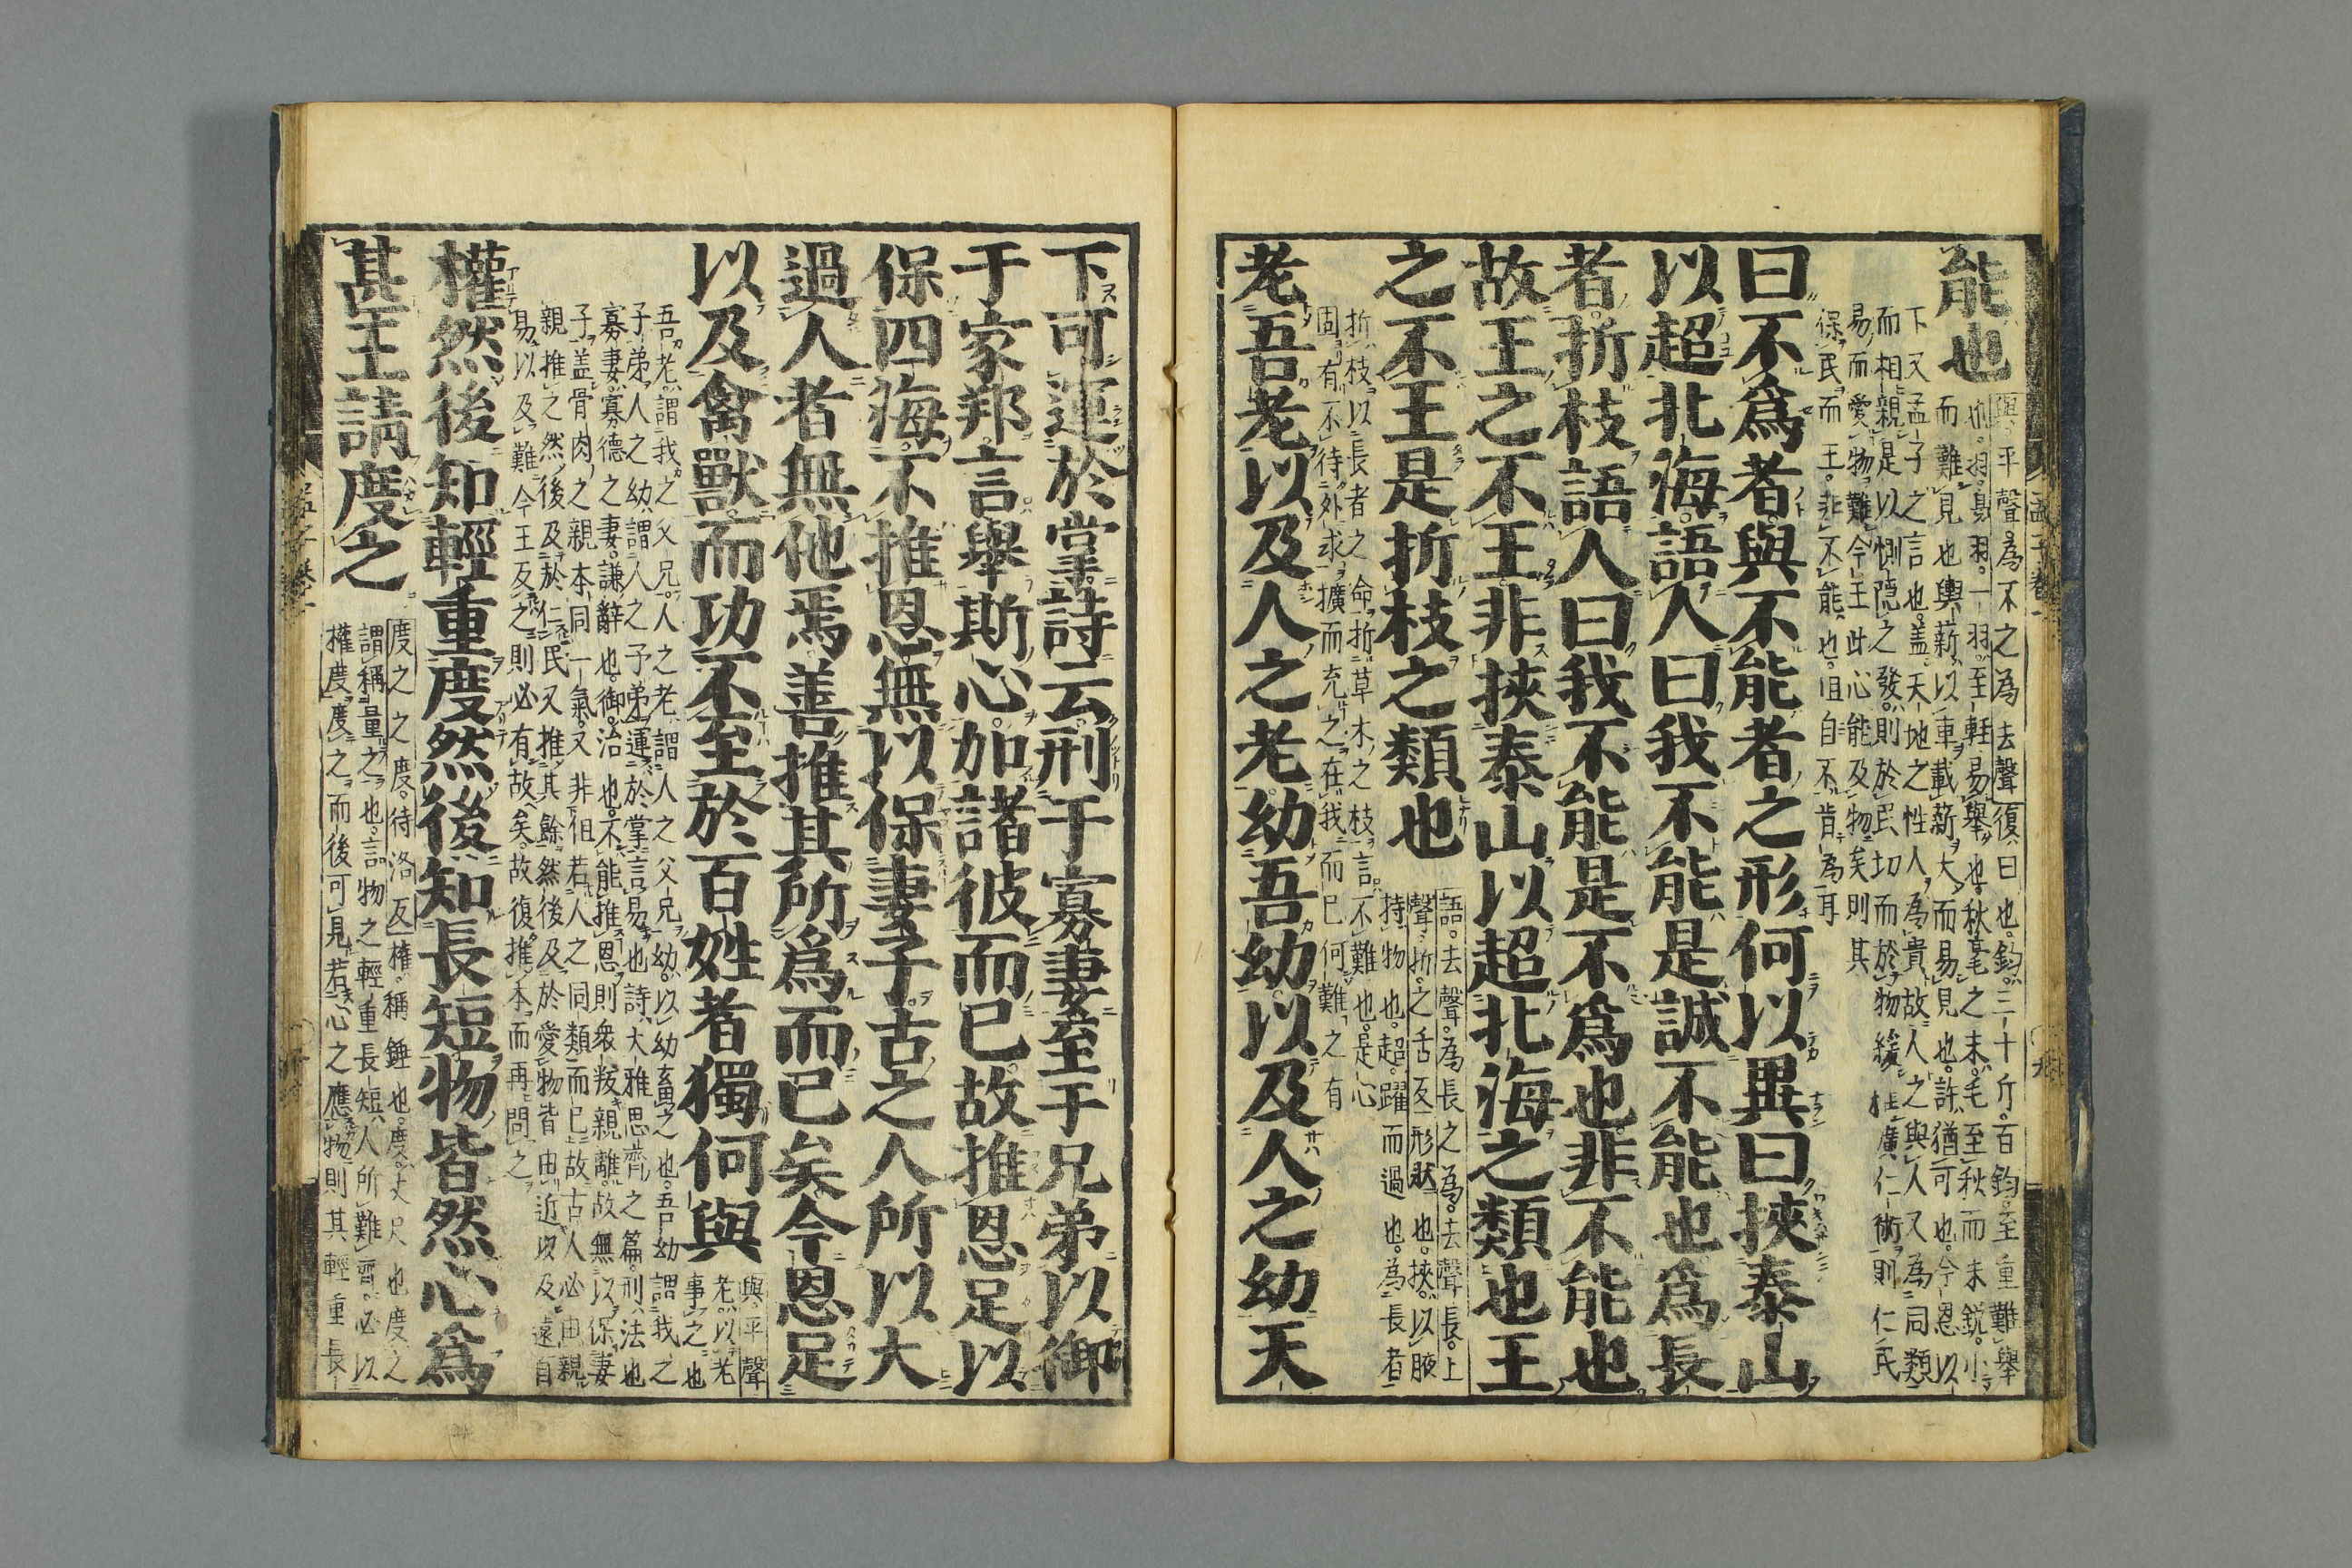 能也
與平聲。為不之為去聲復曰也。鈞三十斤。百鈞至重難舉
也。羽鳥羽。一羽。至輕易舉也。秋毫之末。毛至秋而末銳。小
而難見也輿薪以車載薪。大而易見也。許猶可也。今恩以
下又孟子之言也。盖天地之性人為貴。故人之與人又為同類
而相親。是以惻隠之發。則於民切而於物緩推廣仁術則仁民
易而愛物難今王此心能及物矣則其
保民而王。非不能也。但自不肯為耳
曰不爲者與不能者之形何以異曰挾泰山
以超北海語人曰我不能是誠不能也爲長
者折枝語人曰我不能是不爲也非不能也
故王之不王非挾泰山以超北海之類也王
之不王是折枝之類也
語。去聲。為長之為。去聲長。上
聲折。之舌反形狀也。挾。以腋
持物也。超。躍而過也。為長者
折枝以長者之命折草木之枝言不難也。是心
固有不待外求擴而充之在我而已何難之有
老吾老以及人之老幼吾幼以及人之幼天
下可運於掌詩云刑于寡妻至于兄弟以御
于家邦言舉斯心加諸彼而已故推恩足以
保四海不推恩無以保妻子古之人所以大
過人者無他焉善推其所爲而已矣今恩足
以及禽獸而功不至於百姓者獨何與
與平聲
老以老
事之也
吾老。謂我之父兄。人之老。謂人之父兄幼。以幼畜之也。吾幼謂我之
子弟人之幼謂人之子弟運於掌言易也詩大雅思齊之篇。刑法也
寡妻寡德之妻。謙辭也。御。治也。不能推恩則衆叛親離。故無以保妻
子盖骨肉之親本同一氣。又非但若人之同類而已故古人必由親
親推之然後及於仁民又推其餘然後及於愛物皆由近以及遠自
易以及難今王反之則必有故矣。故復推本而再問之
權然後知輕重度然後知長短物皆然心爲
甚王請度之
度之之度。待洛反權。稱錘也。度。丈尺也度之
謂稱量之也。言物之輕重長短。人所難齊。必以
權度度之而後可見若心之應物則其輕重長